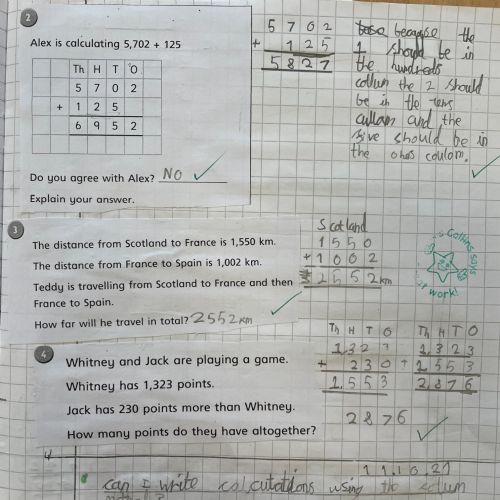 2
Alex is calculating 5,702 + 125
Th H T O
5 7 0 2
+ 1 2 5
6 9 5 2
Do you agree with Alex? No
Explain your answer.
5 7 0 2
+ 1 2 5
5 8 2 7
because the
1 should be in
the hundreds
collum the 2 should
be in the tens
cullam and the
five should be in
the ones coulom.
3
The distance from Scotland to France is 1,550 km.
The distance from France to Spain is 1,002 km.
Teddy is travelling from Scotland to France and then
France to Spain.
How far will he travel in total? 2552km
Scotland
1 5 5 0
+ 1 0 0 2
2 5 5 2 km
Collins says
work!
4
Whitney and Jack are playing a game.
Whitney has 1,323 points.
Jack has 230 points more than Whitney.
How many points do they have altogether?
Th H T O
1,3 2 3
+ 2 3 0
1,5 5 3
Th H T O
1,3 2 3
+ 1,5 5 3
2,8 7 6
2876
11.10.21
can I write calculations using the colum